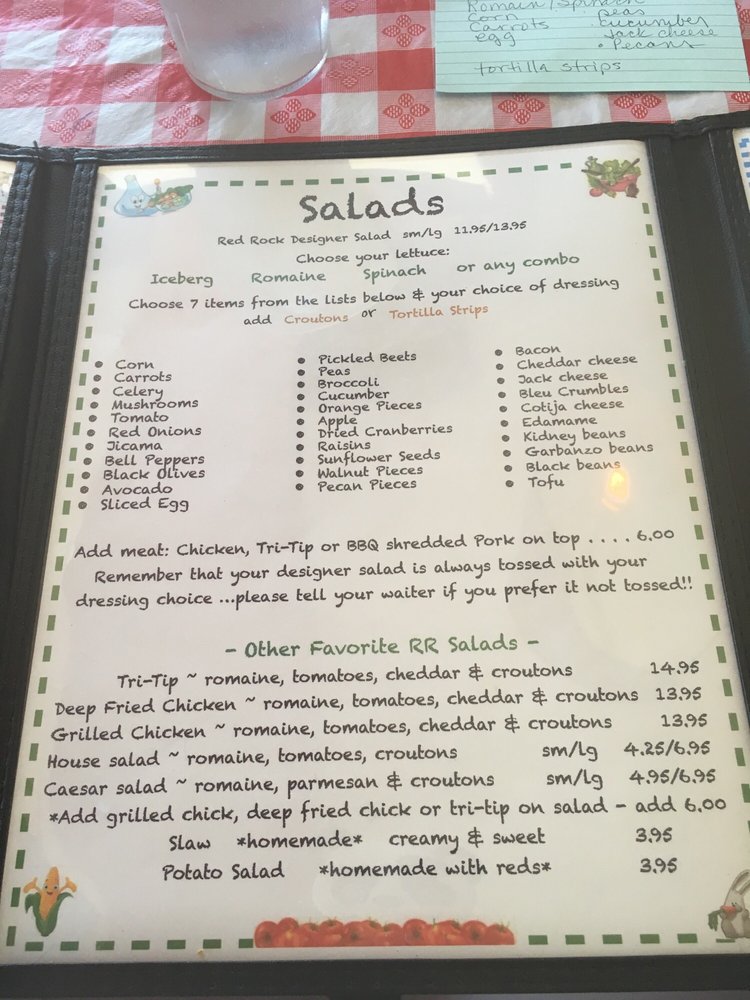 Romain/Spinach
Corn
Peas
Carrots
Cucumber
egg
Jack cheese
• Pecans
tortilla strips
Salads
Red Rock Designer Salad sm/lg 11.95/13.95
Choose your lettuce:
Iceberg Romaine Spinach or any combo
Choose 7 items from the lists below & your choice of dressing
add Croutons or Tortilla Strips
• Corn
• Carrots
• Celery
• Mushrooms
• Tomato
• Red Onions
• Jicama
• Bell Peppers
• Black Olives
• Avocado
• Sliced Egg
• Pickled Beets
• Peas
• Broccoli
• Cucumber
• Orange Pieces
• Apple
• Dried Cranberries
• Raisins
• Sunflower Seeds
• Walnut Pieces
• Pecan Pieces
• Bacon
• Cheddar cheese
• Jack cheese
• Bleu Crumbles
• Cotija cheese
• Edamame
• Kidney beans
• Garbanzo beans
• Black beans
• Tofu
Add meat: Chicken, Tri-Tip or BBQ shredded Pork on top . . . . 6.00
Remember that your designer salad is always tossed with your
dressing choice ...please tell your waiter if you prefer it not tossed!!
- Other Favorite RR Salads -
Tri-Tip ~ romaine, tomatoes, cheddar & croutons 14.95
Deep Fried Chicken ~ romaine, tomatoes, cheddar & croutons 13.95
Grilled Chicken ~ romaine, tomatoes, cheddar & croutons 13.95
House salad ~ romaine, tomatoes, croutons sm/lg 4.25/6.95
Caesar salad ~ romaine, parmesan & croutons sm/lg 4.95/6.95
*Add grilled chick, deep fried chick or tri-tip on salad - add 6.00
Slaw *homemade* creamy & sweet 3.95
Potato Salad *homemade with reds* 3.95